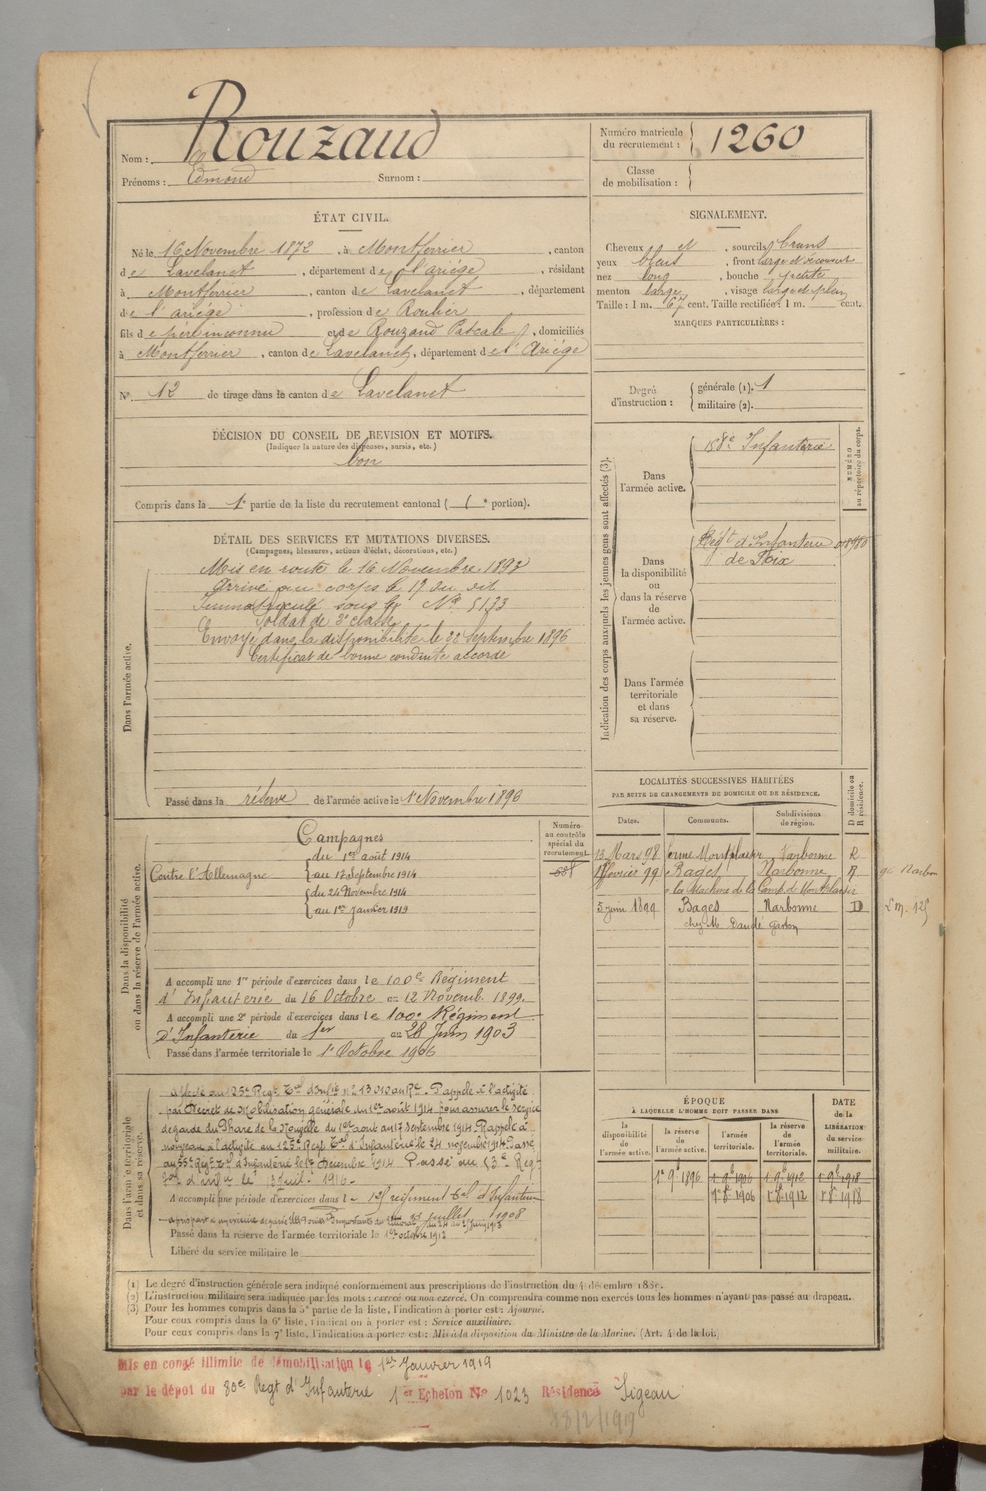 Nom : Rouzaud
Prénoms : Edmond Surnom :
Numéro matricule du recrutement : 1260
Classe de mobilisation :
ÉTAT CIVIL.
Né le 16 Novembre 1872, à Montferrier, canton
de Lavelanet, département de l'ariége, résidant
à Montferrier, canton de Lavelanet, département
de l'ariége, profession de Roulier
fils de père inconnu et de Rouzaud Pascale, domiciliés
à Montferrier, canton de Lavelanet, département de l'Ariége
N° 12 de tirage dans le canton de Lavelanet
DÉCISION DU CONSEIL DE REVISION ET MOTIFS.
(Indiquer la nature des dispenses, sursis, etc.)
bon
Compris dans la 1e partie de la liste du recrutement cantonal ( e portion).
SIGNALEMENT.
Cheveux et, sourcils bruns
yeux bleus, front large et découvert
nez long, bouche petite
menton large, visage large et plein
Taille : 1 m. 67 cent. Taille rectifiée : 1 m. cent.
MARQUES PARTICULIÈRES :
Degré d'instruction : générale (1). 1
militaire (2).
DÉTAIL DES SERVICES ET MUTATIONS DIVERSES.
(Campagnes, blessures, actions d'éclat, décorations, etc.)
Dans l'armée active.
Mis en route le 16 Novembre 1893
Arrivé au corps le 17 du dit
Immatriculé sous le N° 5133
Soldat de 2e classe
Envoyé dans la disponibilité le 22 Septembre 1896
Certificat de bonne conduite accordé
Passé dans la réserve de l'armée active le 1 Novembre 1896
Indication des corps auxquels les jeunes gens sont affectés (3).
NUMÉRO au répertoire du corps.
Dans l'armée active.
158e Infanterie
Dans la disponibilité ou dans la réserve de l'armée active.
Régt d'Infanterie
de Foix
Dans l'armée territoriale et dans sa réserve.
LOCALITÉS SUCCESSIVES HABITÉES
PAR SUITE DE CHANGEMENTS DE DOMICILE OU DE RÉSIDENCE.
Dates. Communes. Subdivisions de région. D domicile ou R résidence.
13 Mars 98 Narbonne R
février 99 Bages Narbonne R
5 juin 1899 Bages Narbonne D
chez M Daudé Gaston
Dans la disponibilité ou dans la réserve de l'armée active.
Numéro au contrôle spécial du recrutement
Campagnes
Contre l'Allemagne
du 1er août 1914
au 17 Septembre 1914
du 24 Novembre 1914
au 1er Janvier 1919
A accompli une 1re période d'exercices dans le 100e Régiment
d'Infanterie du 16 Octobre au 12 Novemb. 1899.
A accompli une 2e période d'exercices dans le 100e Régiment
d'Infanterie du 1er au 28 Juin 1903
Passé dans l'armée territoriale le 1 Octobre 1906
Dans l'armée territoriale et dans sa réserve.
Rappelé à l'activité
par Décret de Mobilisation générale du 1er août 1914 pour assurer le service
de garde du Phare de la Nouvelle du 1er août au 17 septembre 1914. Rappelé à
nouveau à l'activité au 125e Régt Tal d'Infanterie le 24 novembre 1914. Passé
au 55e Régt Tal d'Infanterie le 1er Décembre 1914. Passé au
A accompli une période d'exercices dans l régiment tal d'Infanterie
juillet 1908
Passé dans la réserve de l'armée territoriale le 1er octobre 1912
Libéré du service militaire le
ÉPOQUE
À LAQUELLE L'HOMME DOIT PASSER DANS
la disponibilité de l'armée active. la réserve de l'armée active. l'armée territoriale. la réserve de l'armée territoriale. DATE de la LIBÉRATION du service militaire.
1er 9b 1896 1er 9b 1906 1er 9b 1912 1er 9b 1918
1er 8b 1906 1er 8b 1912 1er 8b 1918
(1) Le degré d'instruction générale sera indiqué conformément aux prescriptions de l'instruction du 4 décembre 1889.
(2) L'instruction militaire sera indiquée par les mots : exercé ou non exercé. On comprendra comme non exercés tous les hommes n'ayant pas passé au drapeau.
(3) Pour les hommes compris dans la 5e partie de la liste, l'indication à porter est : Ajourné.
Pour ceux compris dans la 6e liste, l'indication à porter est : Service auxiliaire.
Pour ceux compris dans la 7e liste, l'indication à porter est : Mis à la disposition du Ministre de la Marine. (Art. 4 de la loi.)
Mis en congé illimité de démobilisation le 1er Janvier 1919
par le dépôt du 80e Régt d'Infanterie 1er Echelon N° 1023 Résidence Sigean
18/2/1919